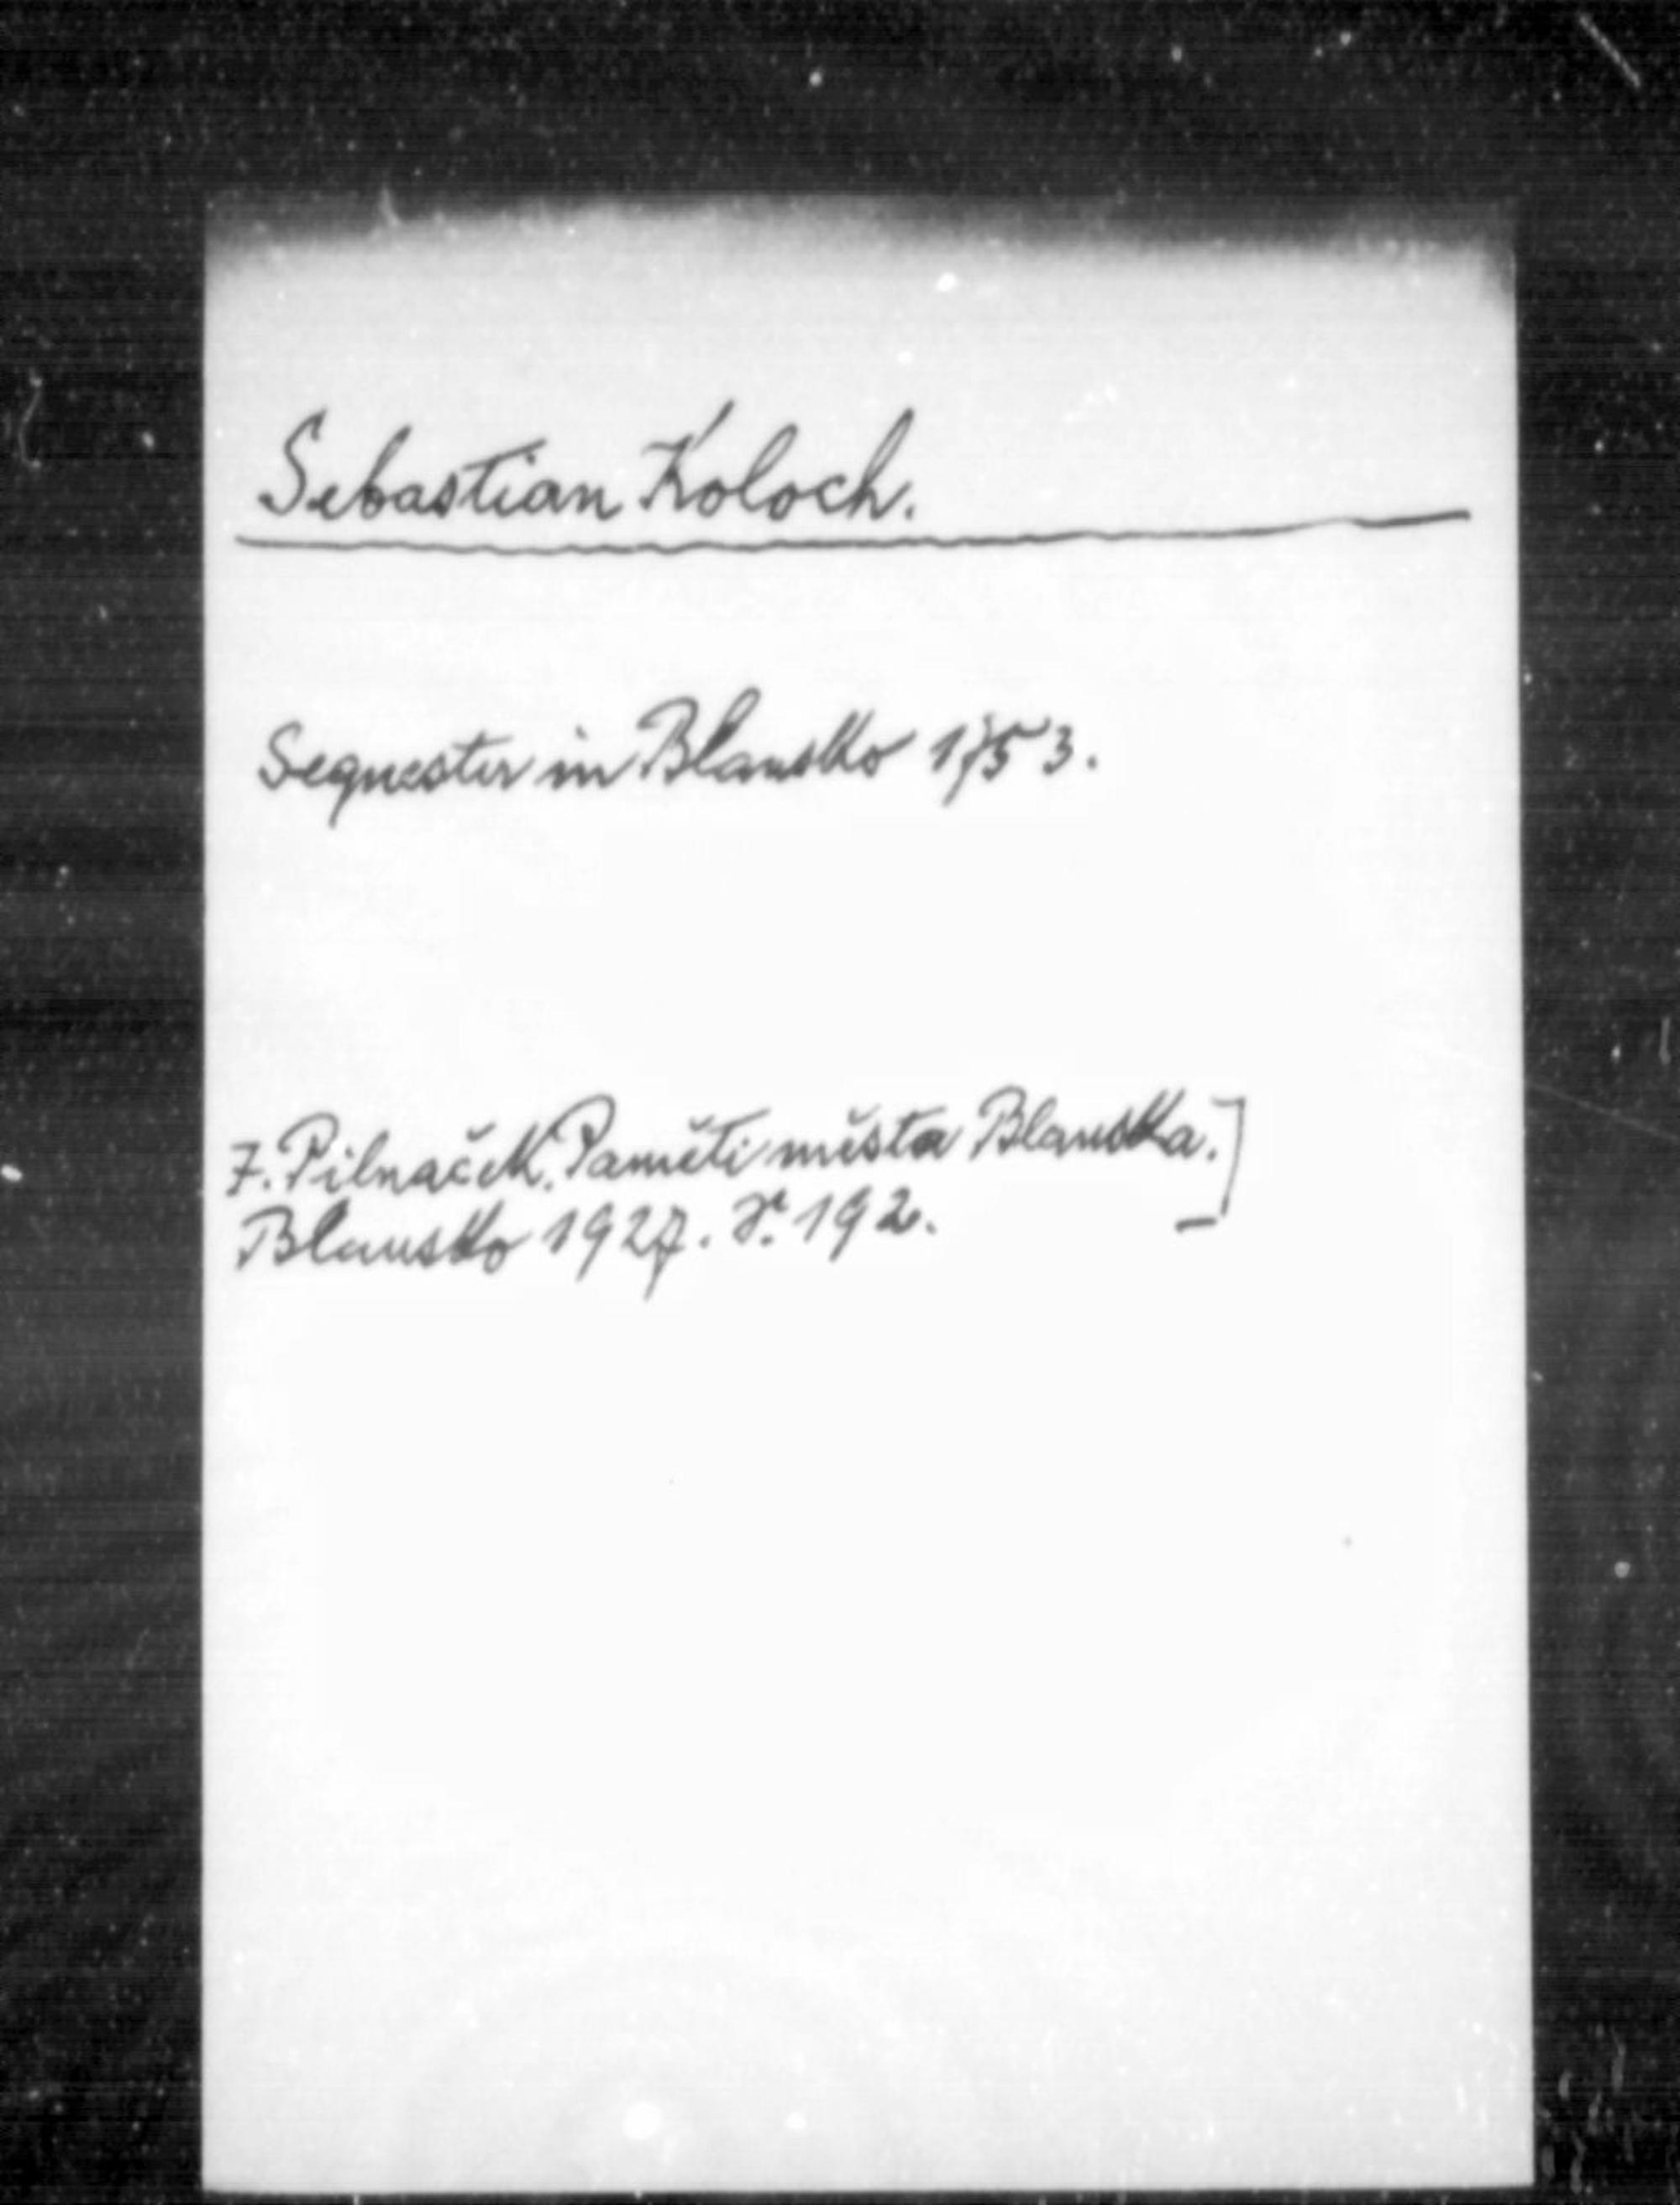 Sebastian Koloch.
Sequester in Blansko 1753.
J. Pilnaček. Paměti města Blanska.]
Blansko 1927. Sr. 192.